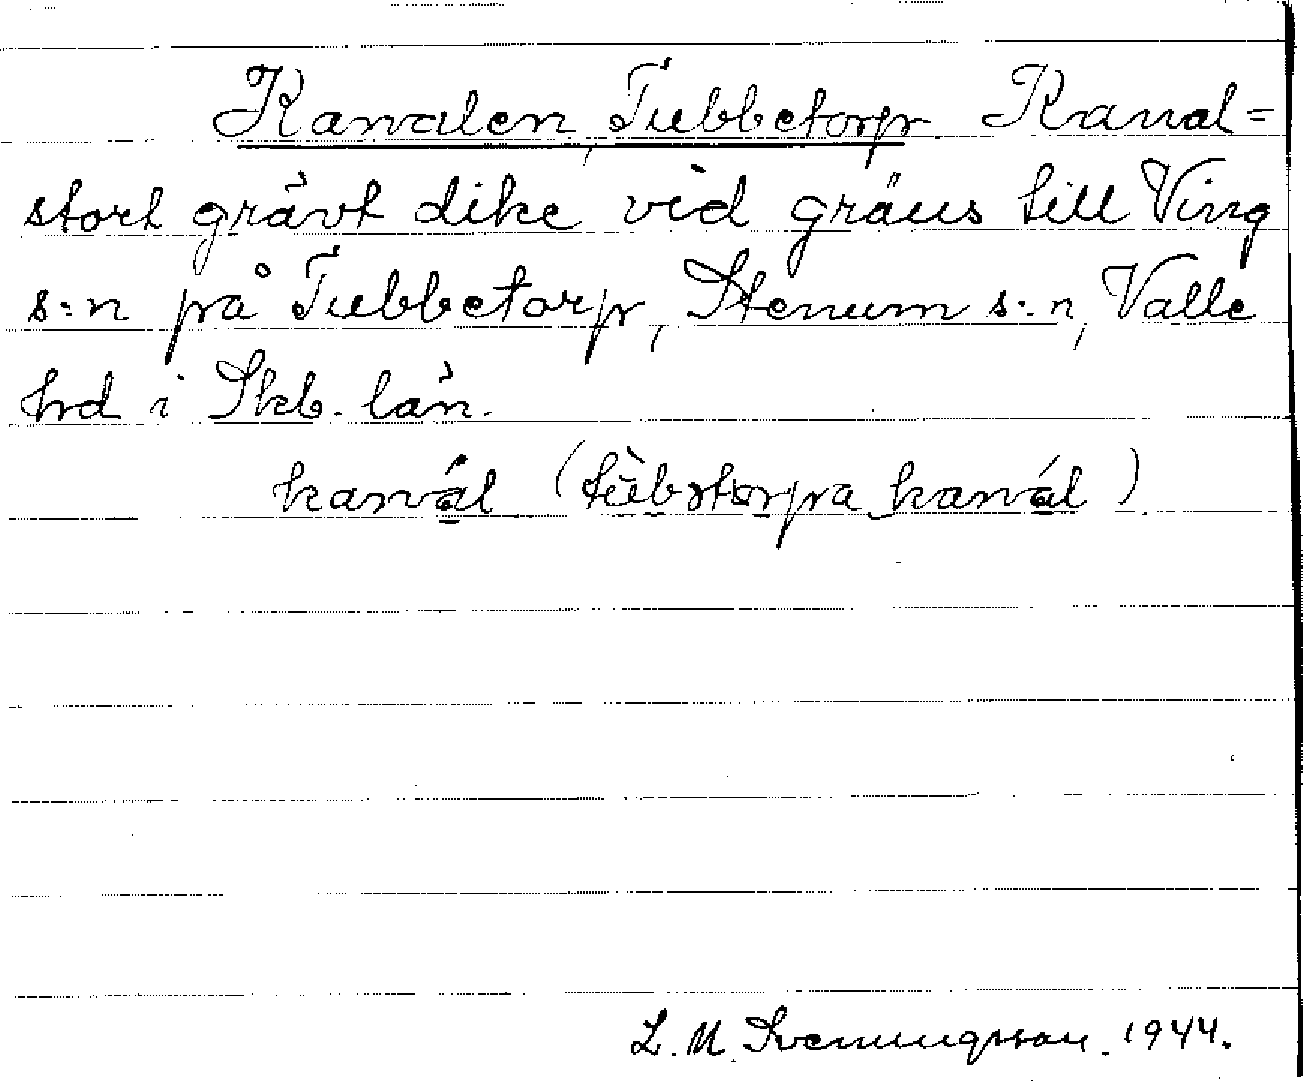 Kanalen, Tubbetorp. Kanal=
stort grävt dike vid gräns till Ving
s:n på Tubbetorp, Stenum s:n, Valle
hrd i Skb. län.
kanál (tùbstorpa kanál).
L. M. Svenungsson. 1944.